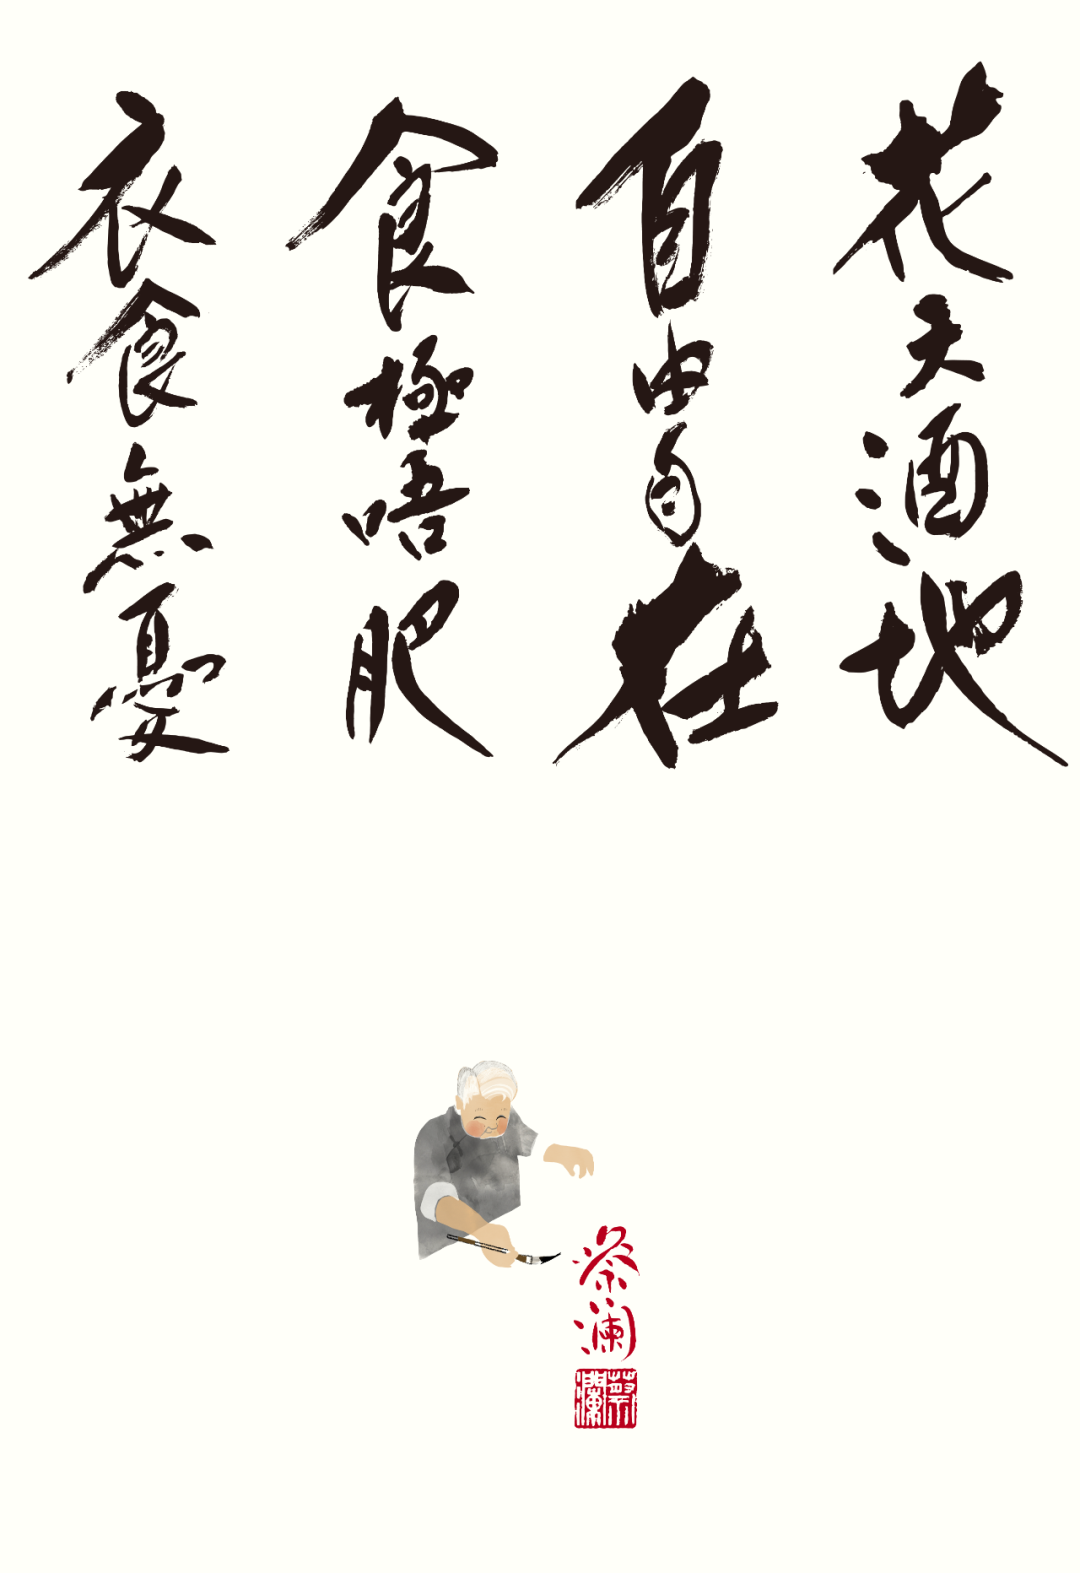 花天酒地
自由自在
食極唔肥
衣食無憂
蔡澜
蔡瀾